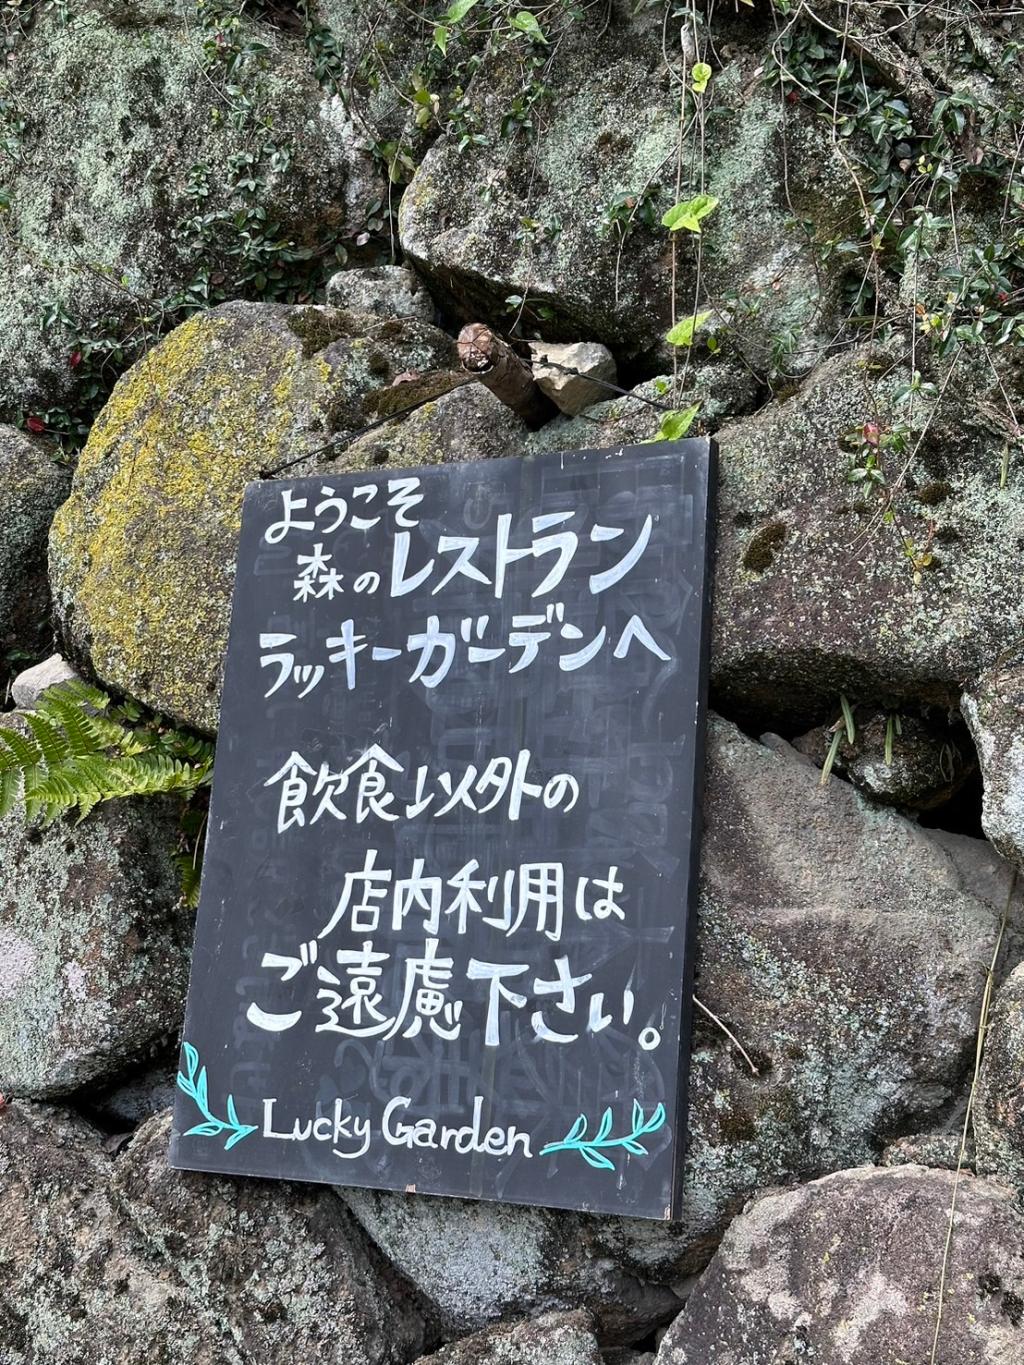 ようこそ
森のレストラン
ラッキーガーデンへ
飲食以外の
店内利用は
ご遠慮下さい。
Lucky Garden